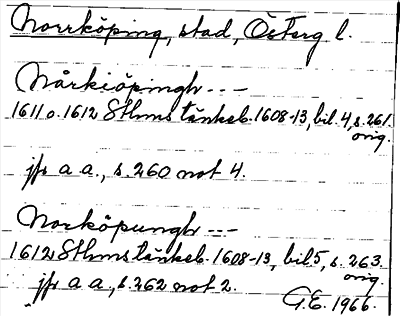 Norrköping, stad, Österg l.
Nårkiöpingh ---
1611 o. 1612 Sthms tänkeb. 1608-13, bil. 4, s. 261.
orig.
jfr a a., s. 260 not 4.
Norköpungh ---
1612 Sthms tänkeb. 1608-13, bil 5, s. 263.
orig.
jfr a a., s. 262 not 2.
G.E. 1966.